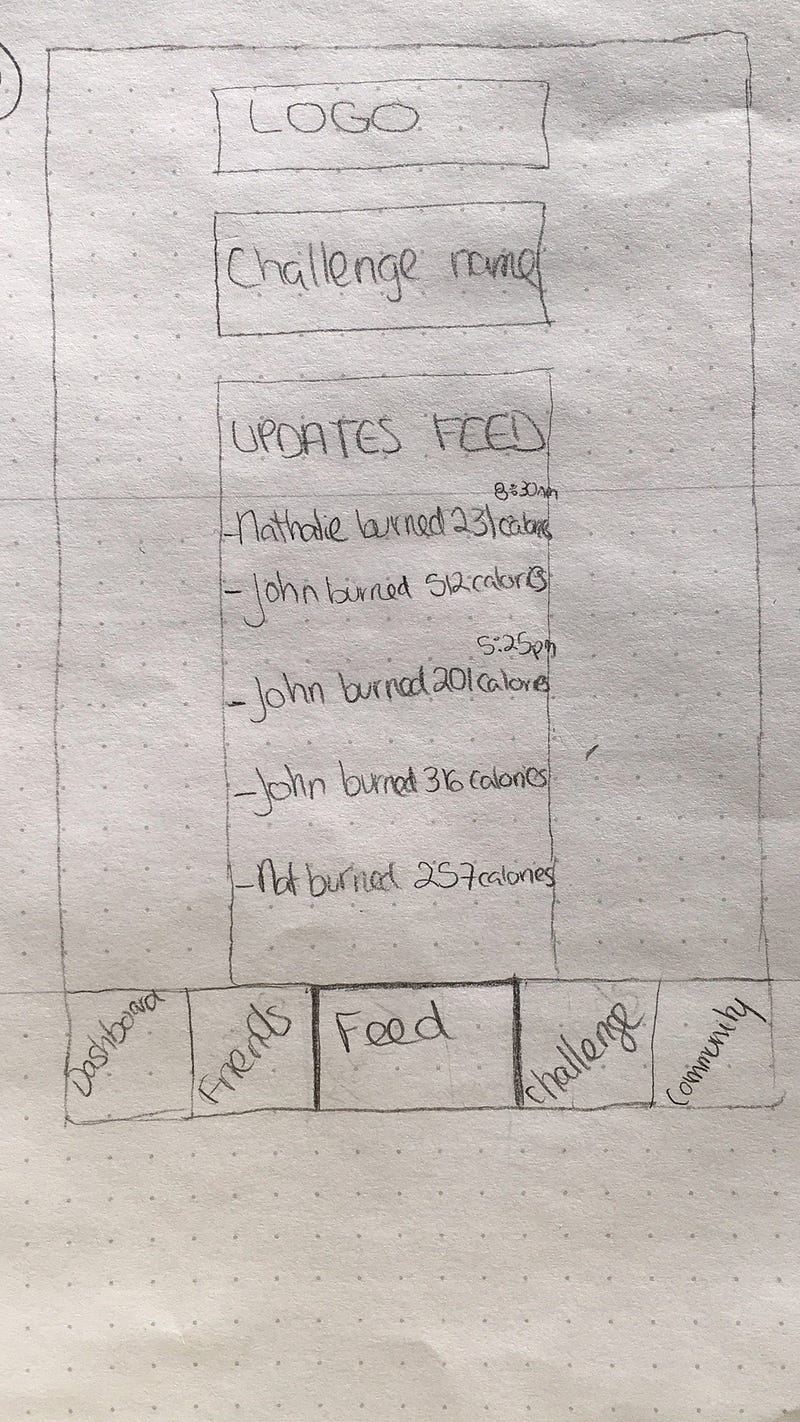 LOGO
Challenge name
UPDATES FEED
-Nathalie burned 231 calories
-John burned 512 calories
5:25pm
-John burned 201 calories
-John burned 316 calories
-Nat burned 257 calories
Dashboard
Friends
Feed
Challenge
Community